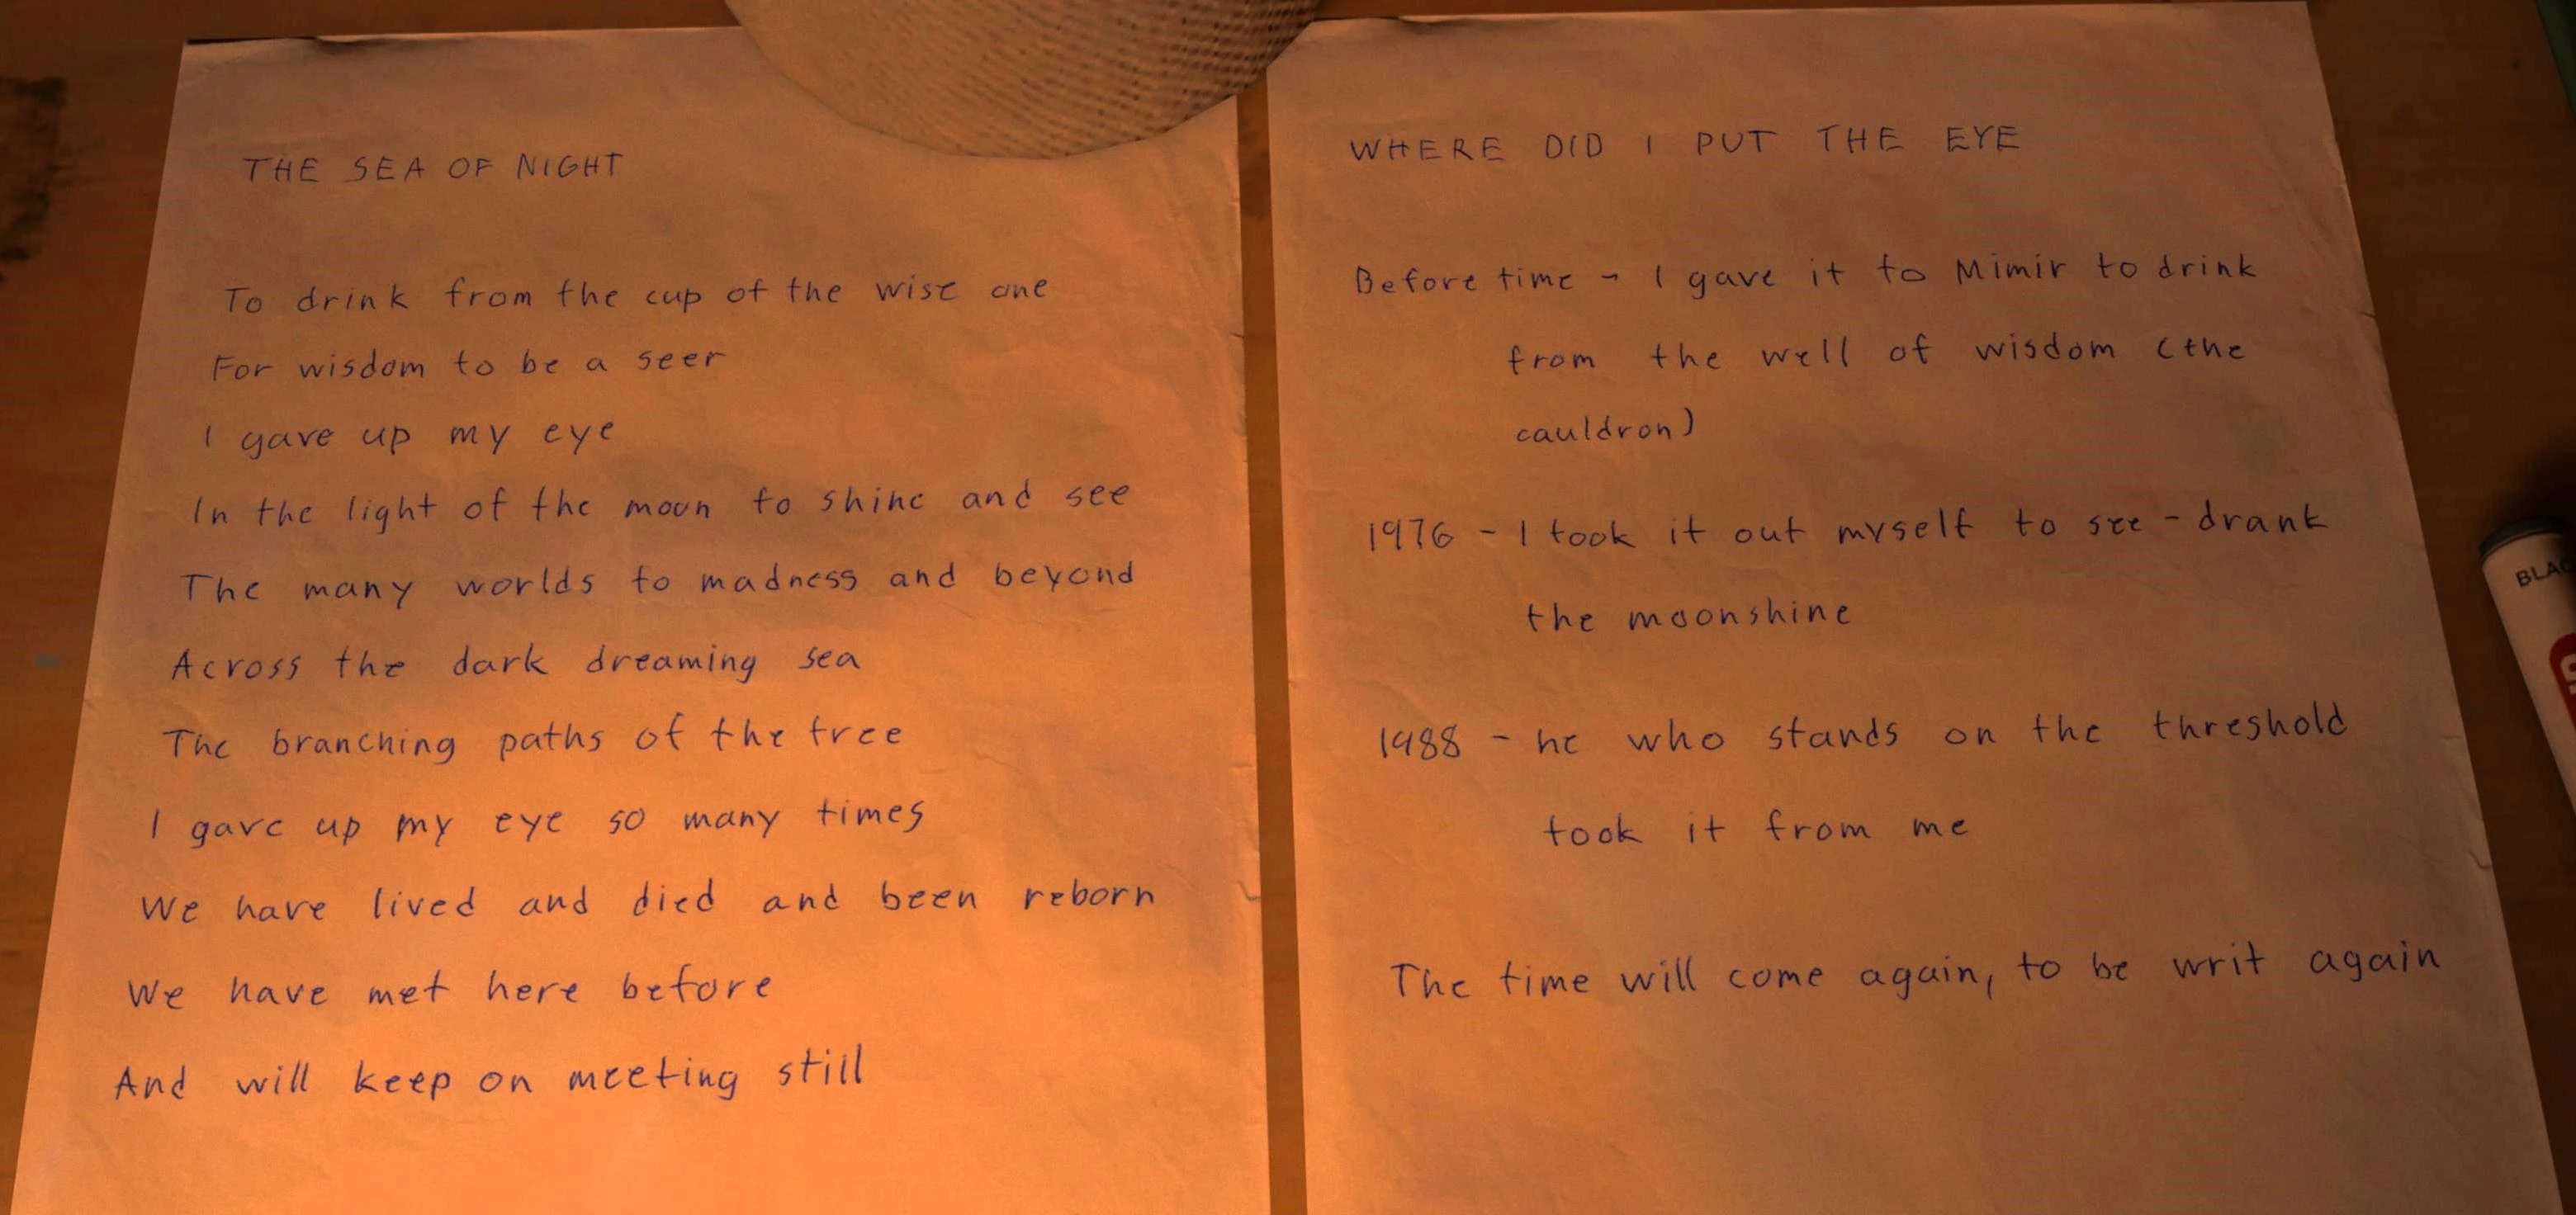 THE SEA OF NIGHT
To drink from the cup of the wise one
For wisdom to be a seer
I gave up my eye
In the light of the moon to shine and see
The many worlds to madness and beyond
Across the dark dreaming sea
The branching paths of the tree
I gave up my eye so many times
We have lived and died and been reborn
We have met here before
And will keep on meeting still
WHERE DID I PUT THE EYE
Before time - I gave it to Mimir to drink
from the well of wisdom (the
cauldron)
1976 - I took it out myself to see - drank
the moonshine
1988 - he who stands on the threshold
took it from me
The time will come again, to be writ again